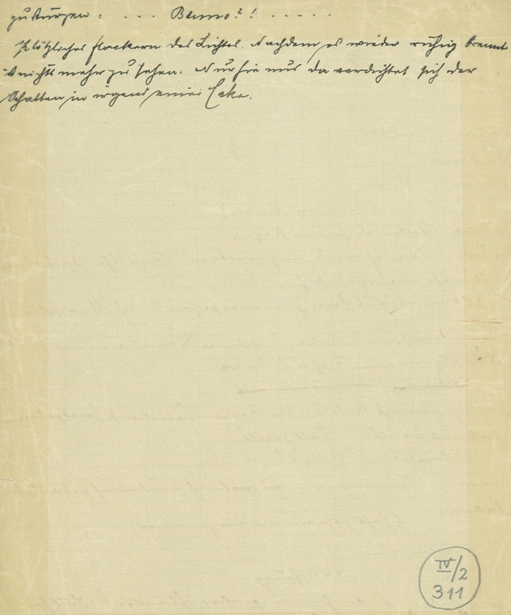 zu stürzen . . . . Benno?! . . . . .
Plötzliches Flackern des Lichtes. Nachdem es wieder ruhig brennt
ist nichts mehr zu sehen. Nur hie und da verdichtet sich der
Schatten in irgend einer Ecke.
IV/2
311